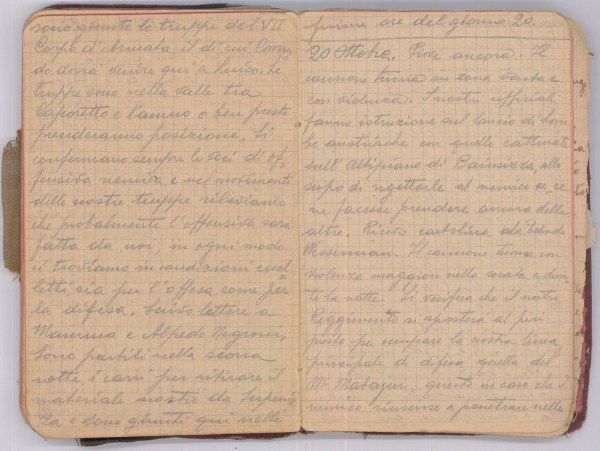 sono giunte le truppe del VII
Corpo d'Armata, il di cui Coman
do dovrà venire qui a Luico. Le
truppe sono nella valle tra
Caporetto e Kamno e ben presto
prenderanno posizione. Si
confermano sempre le voci di of
fensiva nemica e nei movimenti
delle nostre truppe rileviamo
che probalmente l'offensiva sarà
fatta da noi, in ogni modo
ci troviamo in condizioni eccel
letti sia per l'offesa come per
la difesa. Scrivo lettere a
Mamma e Alfredo Negroni,
Sono partiti nella scorsa
notte i carri per ritirare il
materiale nostro da Serpeni
za e sono giunti qui nelle
prime ore del giorno 20.
20 Ottobre. Piove ancora. Il
cannone tuona su zona vasta e
con violenza. I nostri ufficiali
fanno istruzione sul lancio di bom
be austriache con quelle catturate
sull'Altipiano di Bainsizza, allo
scopo di rigettarle al nemico se, se
ne facesse prendere ancora delle
altre. Ricevo cartolina da
Il cannone tuona con
violenza maggiore nella serata e duran
te la notte. Si vocifera che il nostro
Reggimento si sposterà al più
presto per occupare la nostra linea
principale di difesa quella del
M. Matajur, questo in caso che il
nemico riuscisse a penetrare nelle